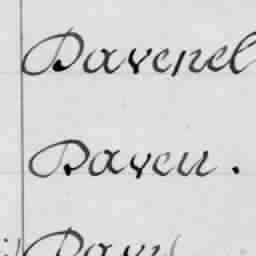 Davenel
Daveu.